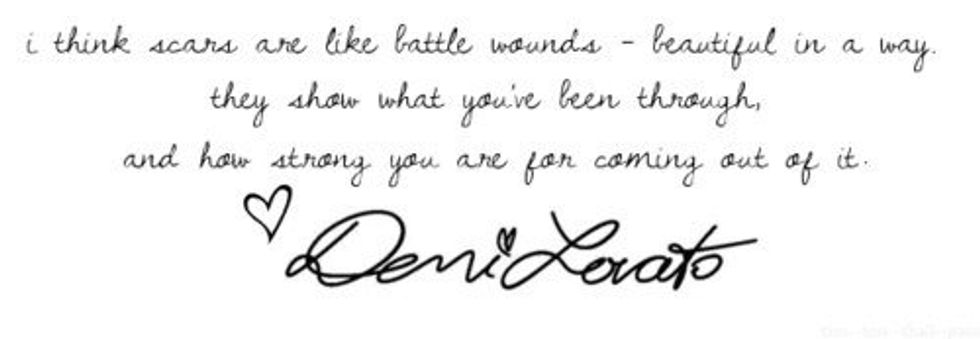 i think scars are like battle wounds - beautiful in a way.
they show what you've been through,
and how strong you are for coming out of it.
Demi Lovato